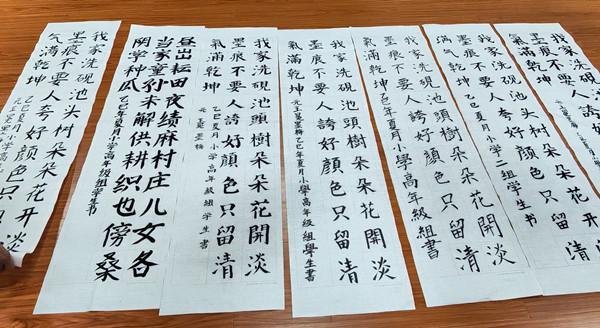 我家洗硯池头树朵朵花开淡
墨痕不要人夸好顏色只留
氣滿乾坤
昼出耘田夜绩麻村庄儿女各
当家童孙未解供耕织也傍桑
阴学种瓜 乙巳年夏月小学高年级组学生书
我家洗硯池頭樹朵朵花開淡
墨痕不要人誇好顏色只留清
氣滿乾坤 元王冕墨梅
乙巳夏月小学高年級組学生書
我家洗硯池頭樹朵朵花開淡
墨痕不要人誇好顏色只留清
氣滿乾坤 元王冕墨梅乙巳年夏月小學高年级組學生書
我家洗硯池頭樹朵朵花開淡
墨痕不要人誇好顏色只留清
氣滿乾坤 乙巳年夏月小學高年級組書
我家洗硯池頭樹朵朵花開淡
墨痕不要人誇好顏色只留清
滿气乾坤 乙巳夏月小学二組学生书
我家洗硯池头树朵朵花开淡
墨痕不要人夸好顏色只留
气滿乾坤